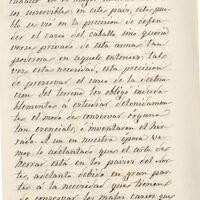 sos increibles en este país, este pue-
blo se vió en la precision de defen-
der el casco del caballo sino queria
verse privado de esta arma tan
poderosa en aquel entonces: tal
vez esta necesidad, esta precision
de preservar el casco de la destruc-
cion del terreno les obligó induda
blemente á estudiar detenidamen-
te el modo de conservar organo
tan esencial; é inventaron el her-
rado. Aun en nuestra época ve-
mos lo adelantado que el arte de
herrar está en los paises del Nor-
te, adelanto debido en gran par-
te á la necesidad que tienen
de conservar los malos cascos que